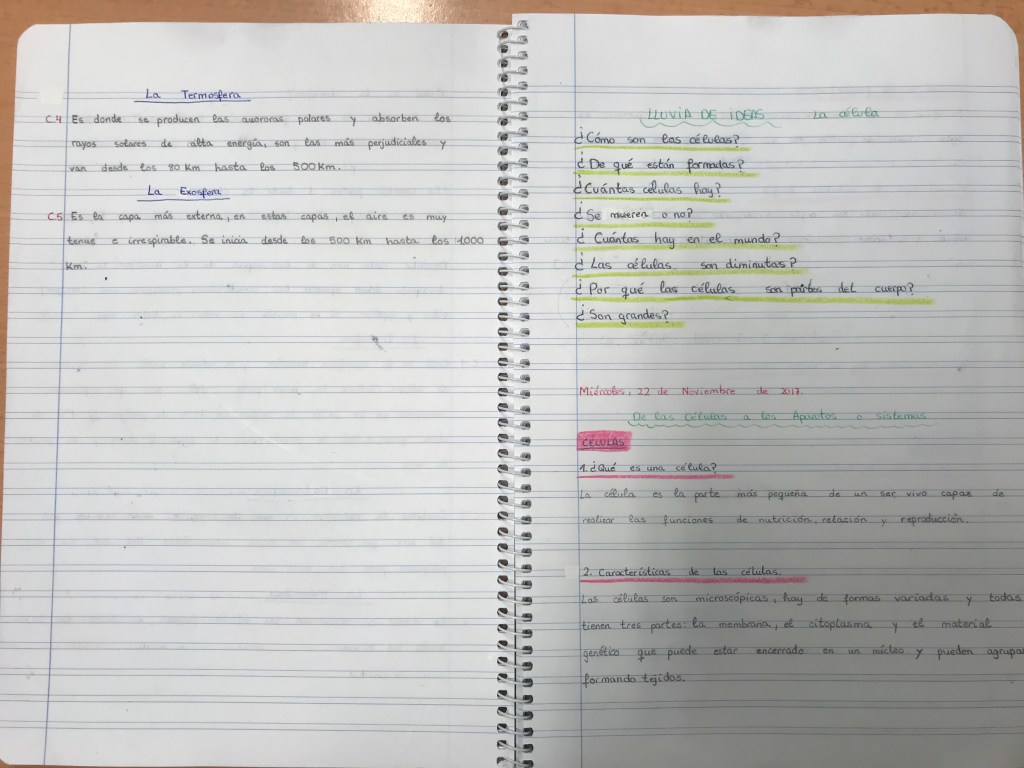 La Termosfera
C.4 Es donde se producen las auroras polares y absorben los
rayos solares de alta energía, son las más perjudiciales y
van desde los 80 Km hasta los 500 Km.
La Exosfera
C.5 Es la capa más externa, en estas capas, el aire es muy
tenue e irrespirable. Se inicia desde los 500 Km hasta los 1.000
Km.
LLUVIA DE IDEAS La célula
¿Cómo son las células?
¿De qué están formadas?
¿Cuántas células hay?
¿Se mueren o no?
¿Cuántas hay en el mundo?
¿Las células son diminutas?
¿Por qué las células son partes del cuerpo?
¿Son grandes?
Miércoles, 22 de Noviembre de 2017.
De las Células a los Aparatos o sistemas
CÉLULAS
1. ¿Qué es una célula?
La célula es la parte más pequeña de un ser vivo capaz de
realizar las funciones de nutrición, relación y reproducción.
2. Características de las células.
Las células son microscópicas, hay de formas variadas y todas
tienen tres partes: la membrana, el citoplasma y el material
genético que puede estar encerrado en un núcleo y pueden agrupa
formando tejidos.